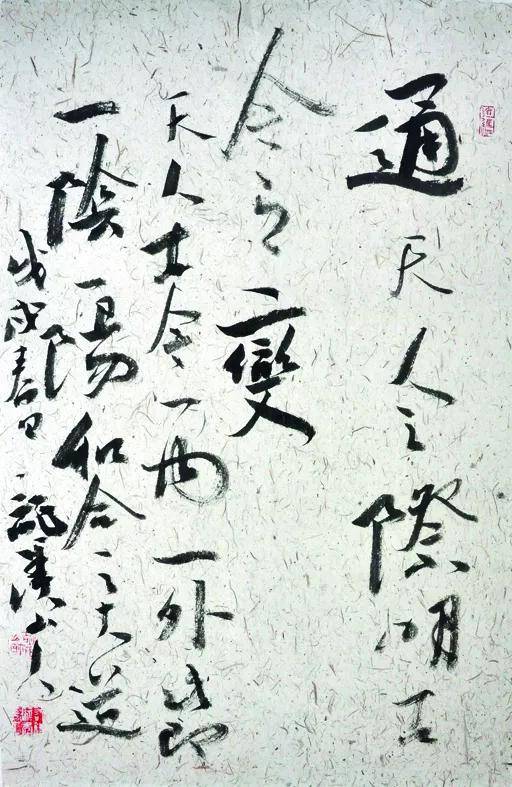 通天人之際明古
今之變
天人古今一內一外此即
一陰一陽和合之大道
戊戌春日